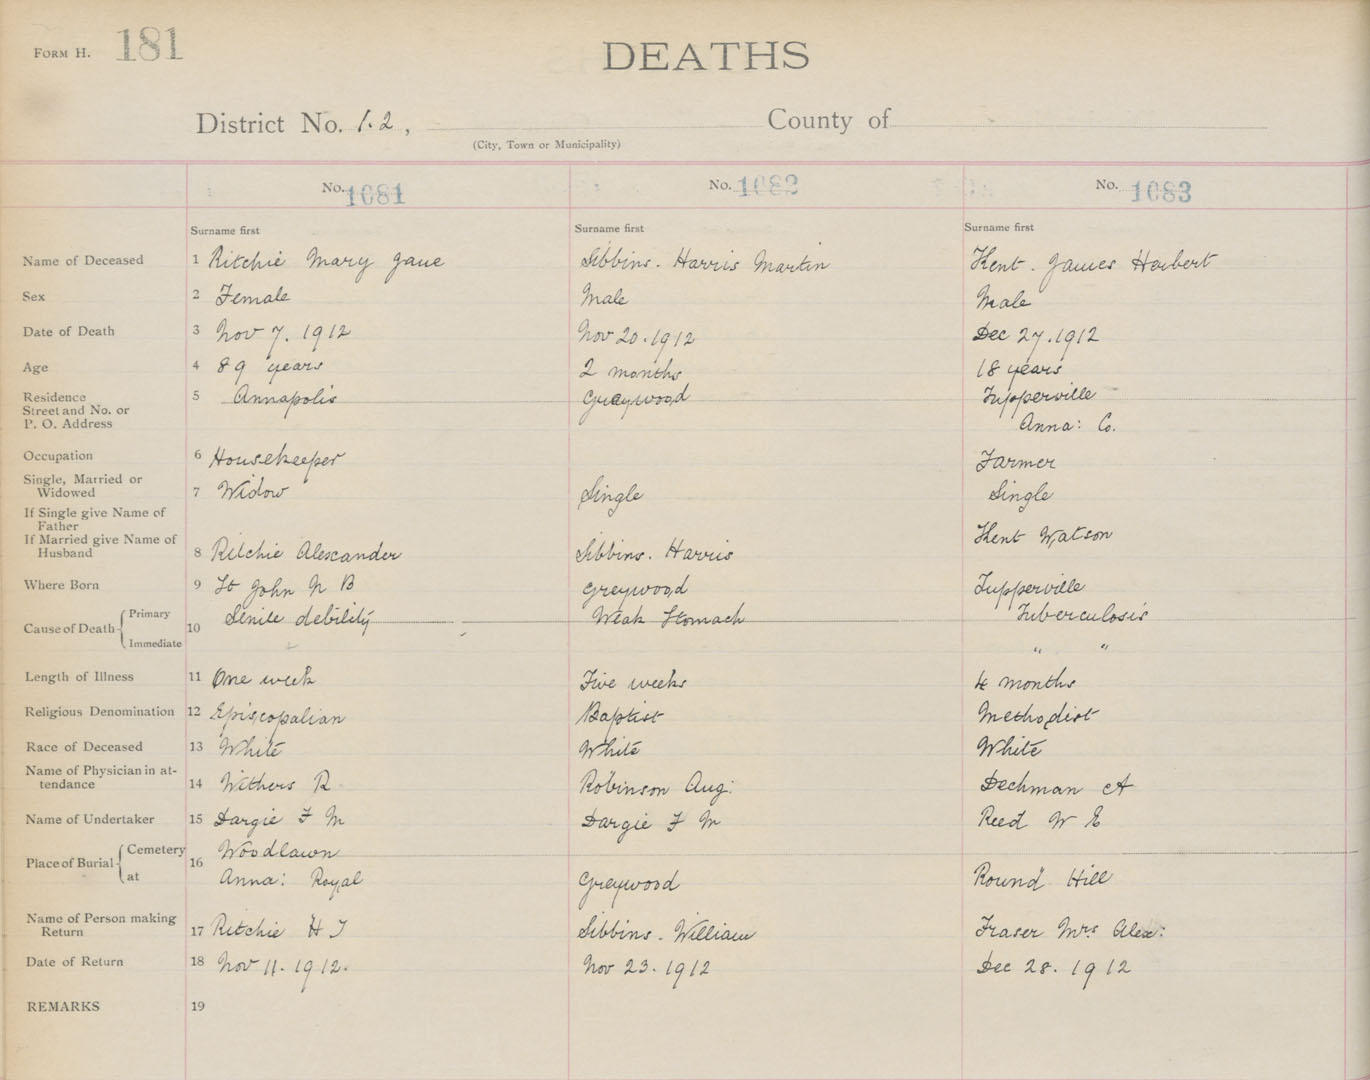 FORM H. 181
DEATHS
District No. 1.2, County of
(City, Town or Municipality)
No. 1081 No. 1082 No. 1083
Surname first Surname first Surname first
Name of Deceased 1 Ritchie Mary Jane Sibbins. Harris Martin Kent. James Herbert
Sex 2 Female Male Male
Date of Death 3 Nov 7. 1912 Nov 20. 1912 Dec 27. 1912
Age 4 89 years 2 months 18 years
Residence 5 Annapolis Greywood Tupperville
Street and No. or
P. O. Address Anna: Co.
Occupation 6 Housekeeper Farmer
Single, Married or
Widowed 7 Widow Single Single
If Single give Name of
Father Kent Watson
If Married give Name of
Husband 8 Ritchie Alexcander Sibbins. Harris
Where Born 9 St John N B Greywood Tupperville
Cause of Death 10 Primary Senile debility Weak Stomach Tuberculosis
Immediate " "
Length of Illness 11 One week Five weeks 4 months
Religious Denomination 12 Episcopalian Baptist Methodist
Race of Deceased 13 White White White
Name of Physician in at-
tendance 14 Withers R Robinson Aug: Dechman A
Name of Undertaker 15 Dargie F M Dargie F M Reed W E
Place of Burial 16 Cemetery Woodlawn
at Anna: Royal Greywood Round Hill
Name of Person making
Return 17 Ritchie H J Sibbins. William Fraser Mrs Alex:
Date of Return 18 Nov 11. 1912. Nov 23. 1912 Dec 28. 1912
REMARKS 19